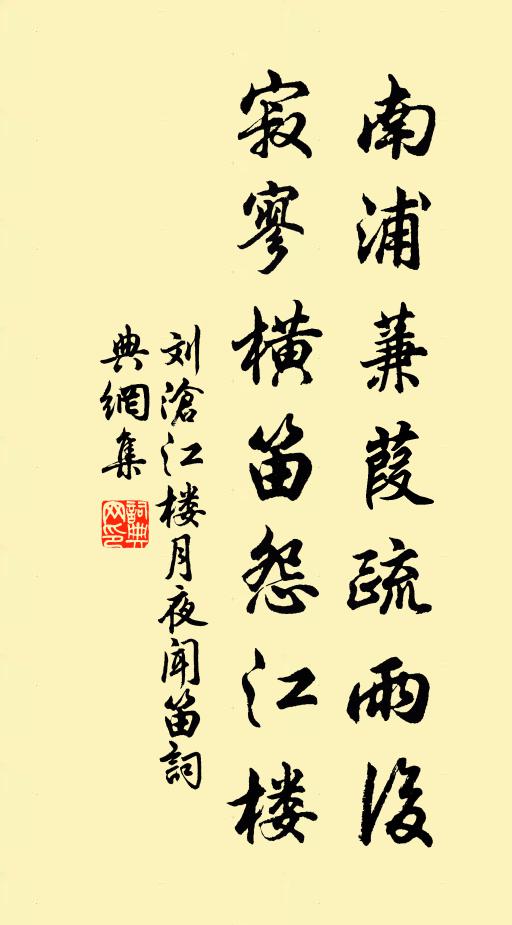 南浦蒹葭疏雨後
寂寥橫笛怨江楼
刘滄江楼月夜闻笛詞
典網集
詞典
网印